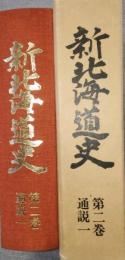 新北海道史
第二巻
通説一
新北海道史
第二巻
通説一